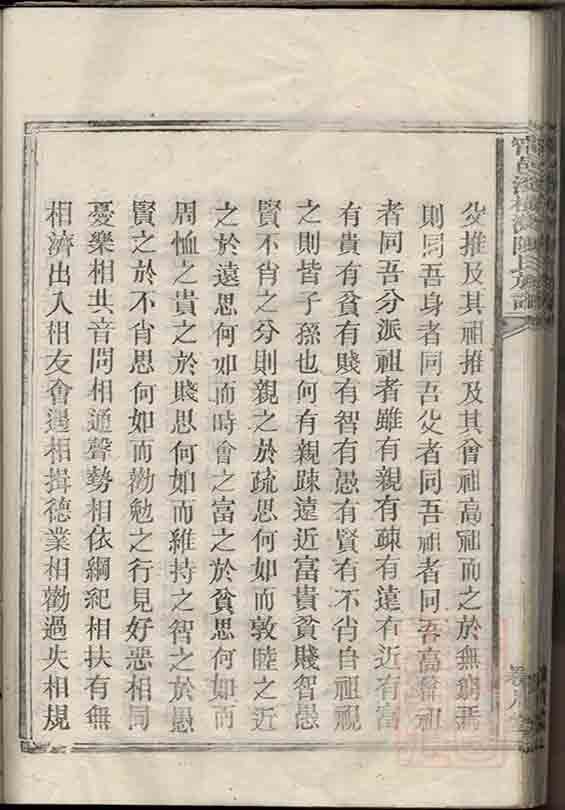 父推及其祖推及其曾祖高祖而之於無窮焉
則同吾身者同吾父者同吾祖者同吾高曾祖
者同吾分派祖者雖有親有疎有遠有近有富
有貴有貧有賤有智有愚有賢有不肖自祖視
之則皆子孫也何有親踈遠近富貴貧賤智愚
賢不肖之分則親之於疏思何如而敦睦之近
之於遠思何如而時會之富之於貧思何如而
周恤之貴之於賤思何如而維持之智之於愚
賢之於不肖思何如而勸勉之行見好惡相同
憂樂相共音問相通聲勢相依綱紀相扶有無
相濟出入相友會遇相揖德業相勸過失相規